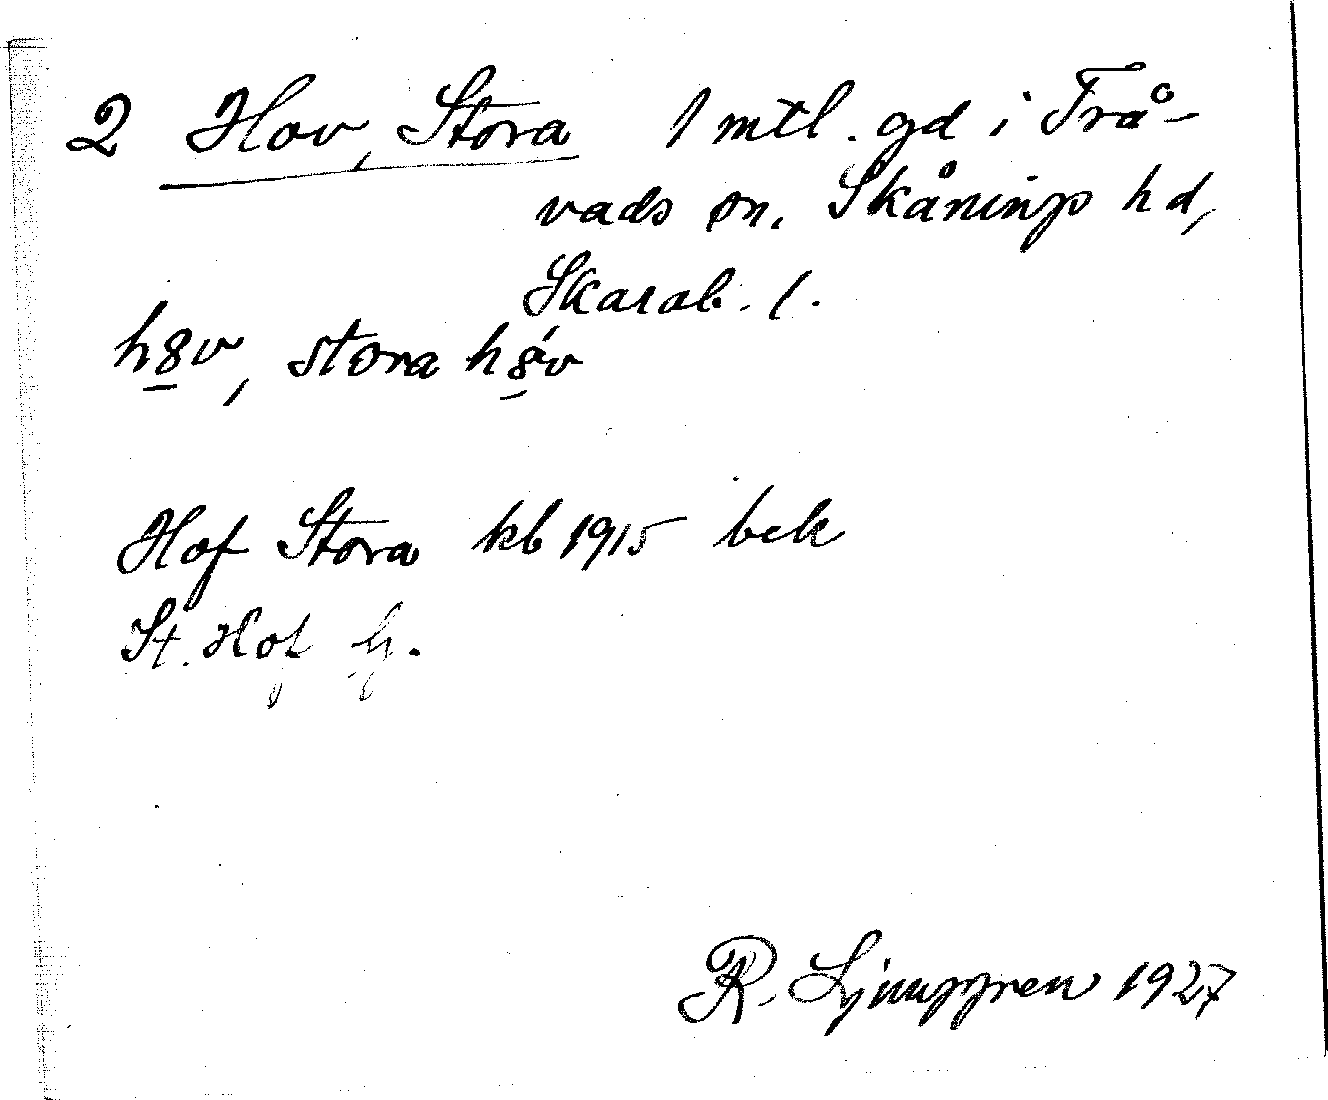 2 Hov, Stora 1 mtl. gd i Trå-
vads sn. Skånings hd,
Skarab. l.
h8v, stora h8́v
Hof Stora kb 1915 bek
St. Hof
R. Ljunggren 1927